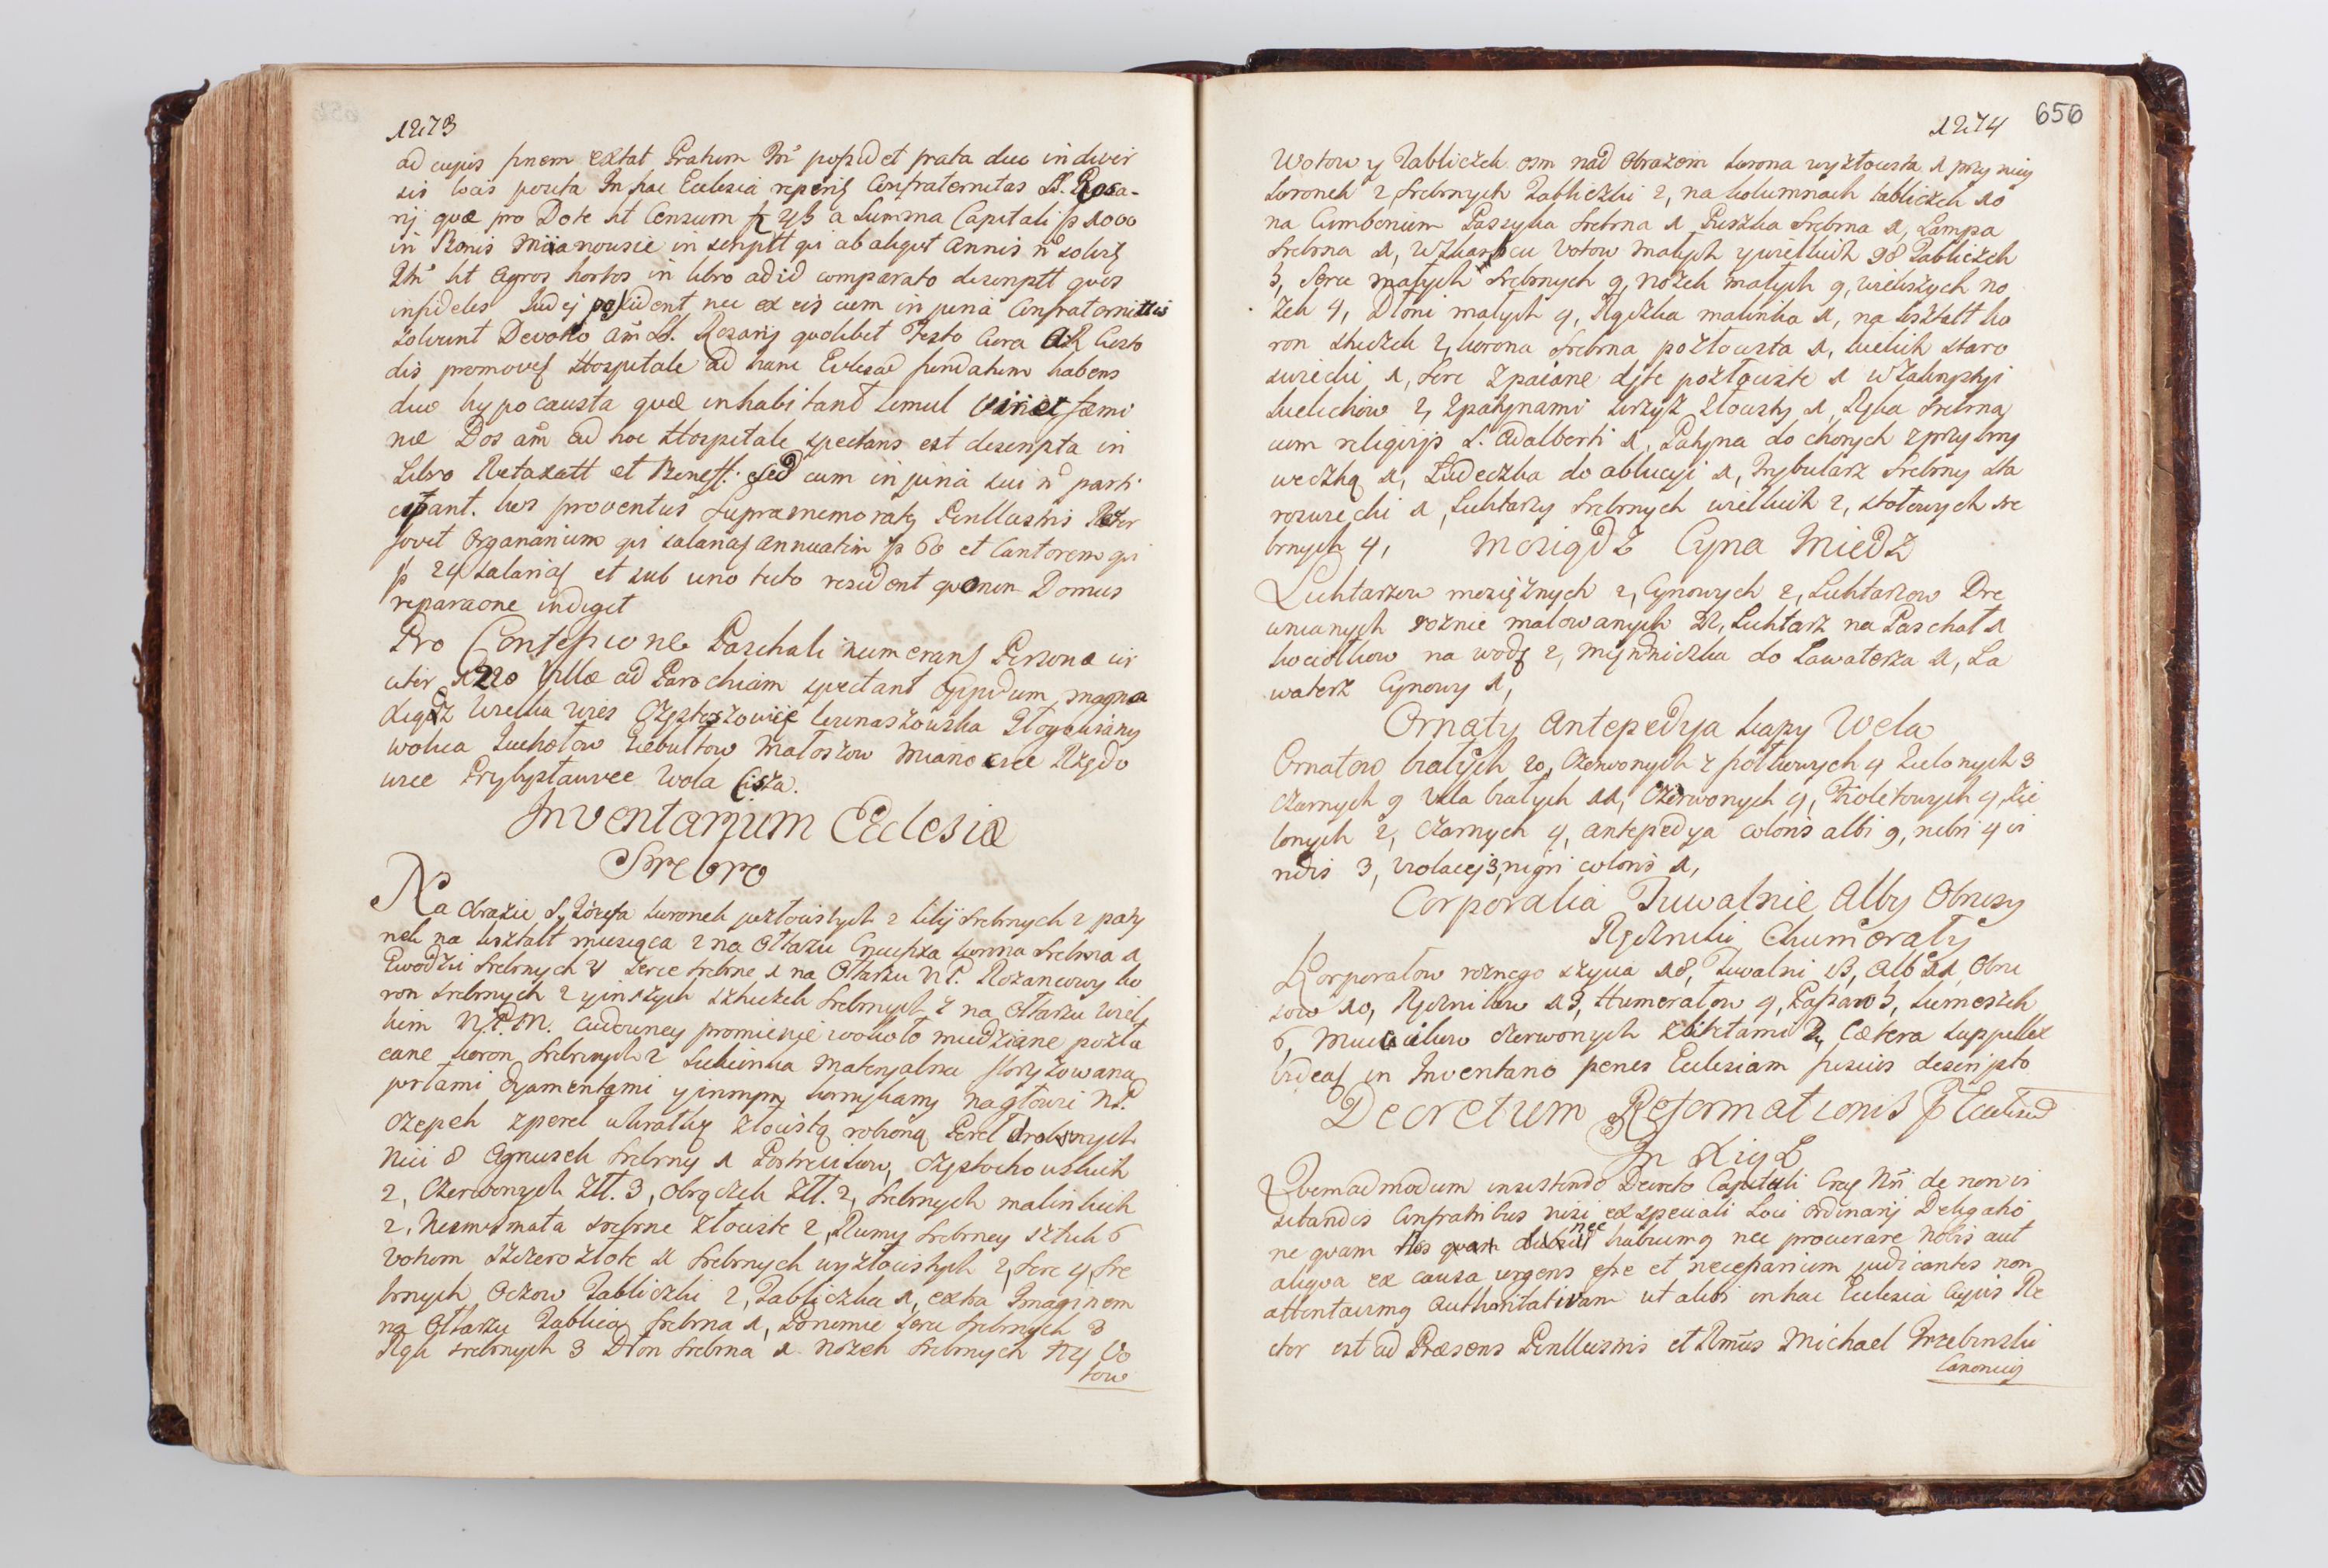 1273
ad cujus finem extat Pratum Itm possidet prata duo in diver
sis locis posita In hac Ecclesia reperitz Confraternitas SS. Rosa-
rij quæ pro Dote ht Censum a Summa Capitali fp 1000
in Bonis Mianousie in senptt qui ab aliqut annis no solvitz
Itm ht agros hortos in libro ad id comparato desenptt quos
infideles Judej possident nec ex eis cum in juria Confraternittis
solvunt Devotio am SS. Rosarij quolibet Festo Cura Custo
dis promovetz Hospitale ad hanc Eccles fundatum habens
duo hypocausta quæ inhabitant simul viri et fæmi
næ Dos am ad hoc Hospitale spectans est desenpta in
Libro Retaxatt et Beneff: sed cum in juria sui no parti
cipant. hos proventus supramemoratz Penllustris Rer
fovet Organarium qui salariatz annuatim fp 60 et Cantorem qui
fp 24 salariatz et sub uno tecto resident quorum Domus
reparaone indiget
Pro Confessione Paschali numerantz Personæ cir
citer 1220 Villæ ad Parochiam spectant Oppidum magna
Xiądz Wielka wies Częstoszowice Kwaszowska Głogowiany
wolica Zuchotow Giebultow Małoszow Mianocice Rzędo
wice Przybysławice Wola Cisza.
Inventarium Ecclesiæ
Srebro
Na obrazie S. Józefa koronek pozłoistych 2 Lilij srebrnych 2 paty
nek na kształt miesiąca 2 na Ołtarzu Crucifixa korona srebrna 1
Gwodzki srebrnych serce srebrne 1 na Ołtarzu NP. Rozancowy ko
ron srebrnych 2 y inszych sztuczek srebrnych 2 na Ołtarzu wiel
kim N.P.M. Cudowney promienie wokoło miedziane pozła
cane koron srebrnych 2 Sukienka materyalna floryzowana
perłami dyamentami y innymi kamykami na głowie NP
czepek z pereł ukratką złocistą robioną Pereł drobnych
Nici 8 Agnusek srebrny 1 Portrecikow, Częstochowskich
2, Czerwonych Złt. 3, obrączek Złt. 2, srebrnych malinkich
2, Numismata srebrne złociste 2, Rumy srebrney sztuk 6
votum szczerozłote 1 srebrnych wyzłoistych 2, serc 4, sre
brnych oczow Tabliczki 2, Tabliczka 1, extra Imaginem
na Ołtarzu Tablica srebrna 1, Ponizmie serc srebrnych 3
Rąk srebrnych 3 Dłon srebrna 1 Nożek srebrnych Vo
tow
1274
656
Wotow y Tabliczek osm nad obrazem korona wyzłoista 1 przy niey
koronek 2 srebrnych Tabliczki 2, na kolumnach tabliczek 10
na Cimborium Paszyka srebrna 1 Puszka srebrna 1, Lampa
srebrna 1, W Skarbcu Votow małych y wielkich 98 Tabliczek
5, Serc małych srebrnych 9, Nożek małych 9, wiekszych no
żek 4, Dłoni małych 4, Rączka malinka 1, na kształt ko
ron sztuczek 2, korona srebrna pozłocista 1, kielich staro
swiecki 1, serc zpaiane dęte pozłociste 1 W Zakrystyi
kielichow 2, z patynami krzyż złoisty 1, Ręka srebrna
cum religijs S. Adalberti 1, Patyna do chorych z przykry
weczką 1, Łudeczka do ablucyi 1, Trybularz srebrny sta
roswiecki 1, Lichtarzy srebrnych wielkich 2, stołowych sre
brnych 4,
Mosiądz Cyna Miedz
Lichtarzow mosiężnych 2, Cynowych 2, Lichtarzow Dre
wnianych roznie malowanych 32, Lichtarz na Paschał 1
kociołkow na wodę 2, Miedniczka do Lawaterza 1, La
waterz Cynowy 1,
Ornaty Antepedya kapy Wela
Ornatow białych 20, Czerwonych z połtowych 4 Zielonych 3
czarnych 9 Vela białych 11, Czerwonych 4, Fioletowych 4, Zie
lonych 2, Czarnych 4, Antepedya coloris albi 9, rubri 4 vi
ridis 3, violacej 3, nigri coloris 1,
Corporalia Tuwalnie Alby Obrusy
Ręczniki Chumeraty
Korporałow roznego szycia 18, Tuwalni 13, Alb 21, Obru
sow 10, Ręcznikow 13, Humerałow 9, Pasow 5, komeszek
6, czerwonych 2, Cætera suppellex
videatz in Inventario penes Ecclesiam fusius descripto
Decretum Reformationis p Ecclesia
In Xiąż
Quemadmodum insistendo Decreto Capituli Cracz Nri de non vi
sitandis Confratribus nisi ex speciali Loci Ordinarij Delegatio
ne quam nec habuimg nec procurare Nobis aut
aliqua ex causa urgens esse et necessarium judicantes non
attentavimg Authoritativam ut alibi in hac Ecclesia Cujus Re
ctor est ad Præsens Penllustris et Rmus Michael Trzebinski
Canonicus